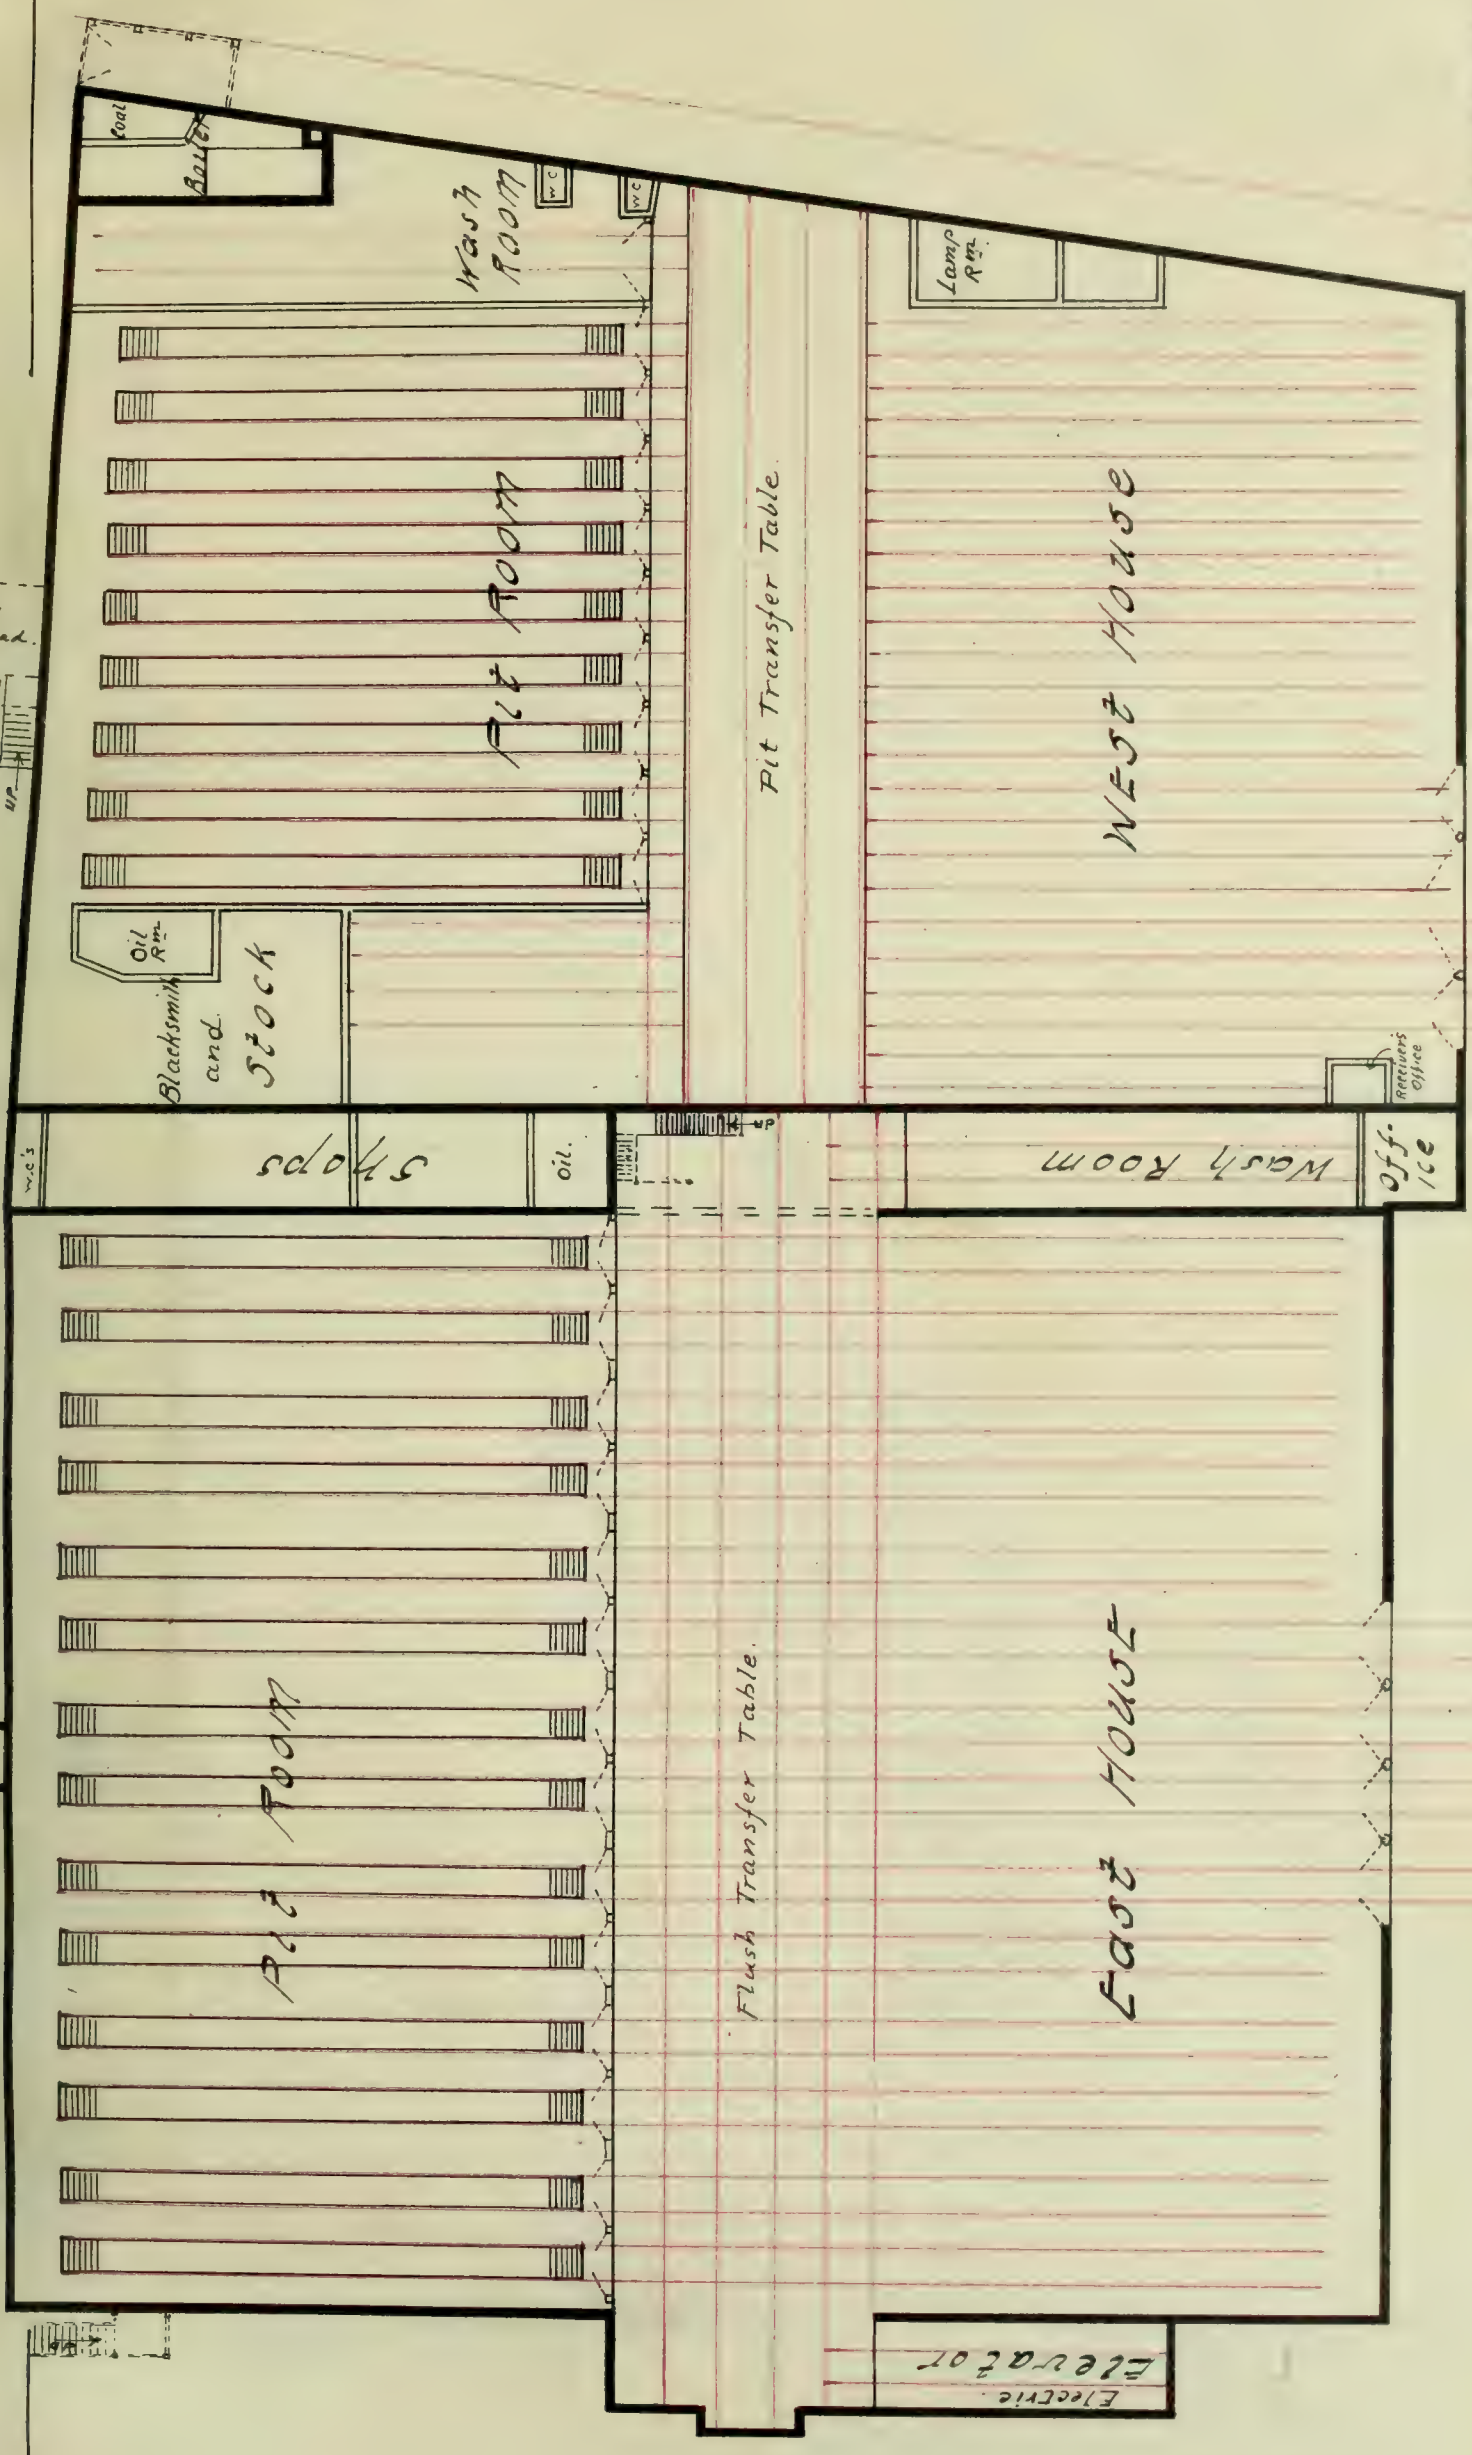 Coal
Boiler
Wash
Room
W C
W C
Lamp
Rm.
Pit Room
Pit Transfer Table.
West House
ad.
UP
Oil
Rm
Blacksmith
and
Stock
Receivers
Office
W.C's
Shops
Oil.
UP
Wash Room
Off-
ice
Pit Room
Flush Transfer Table.
East House
Electric
Elevator